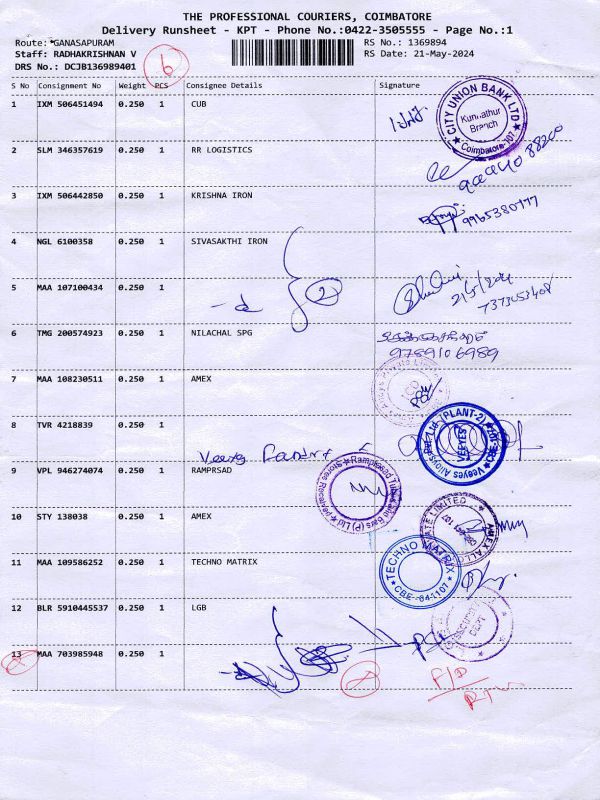 THE PROFESSIONAL COURIERS, COIMBATORE
Delivery Runsheet - KPT - Phone No.:0422-3505555 - Page No.:1
Route: *GANASAPURAM
RS No.: 1369894
Staff: RADHAKRISHNAN V
RS Date: 21-May-2024
DRS No.: DCJB136989401
6
S No Consignment No Weight PCS Consignee Details Signature
1 IXM 506451494 0.250 1 CUB
CITY UNION BANK LTD
Kurumathur
Branch
Coimbatore-107
2 SLM 346357619 0.250 1 RR LOGISTICS
3 IXM 506442850 0.250 1 KRISHNA IRON
9965380777
4 NGL 6100358 0.250 1 SIVASAKTHI IRON
5 MAA 107100434 0.250 1
2
21/5/2024
7373053408
6 TMG 200574923 0.250 1 NILACHAL SPG
9789106989
7 MAA 108230511 0.250 1 AMEX
8 TVR 4218839 0.250 1
Veeyes Alloys Pvt Ltd. (PLANT-2)
VEEYES
9 VPL 946274074 0.250 1 RAMPRSAD
10 STY 138038 0.250 1 AMEX
11 MAA 109586252 0.250 1 TECHNO MATRIX
TECHNO MATRIX
CBE -641107
12 BLR 5910445537 0.250 1 LGB
13 MAA 703985948 0.250 1